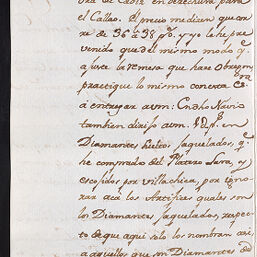 vra de Cadiz en derechura para
el Callao. El precio medio en que cor
re de 36 a 38 p.s y yo le he pre
venido que del mismo modo q.e
ajuste la remesa que hace Obregon
practique lo mismo con esta
â entregar a v.m: En dho Navio
tambien dirijo a v.m. en
Diamantes fieltos jaquelados, q.e
he comprado del Platero Jara, y
escojidos por villachica, por igno
rar acâ los Artifices quales son
los Diamantes jaquelados, respec
to de que aqui solo los nombran asi
a aquellos que son Diamantes de